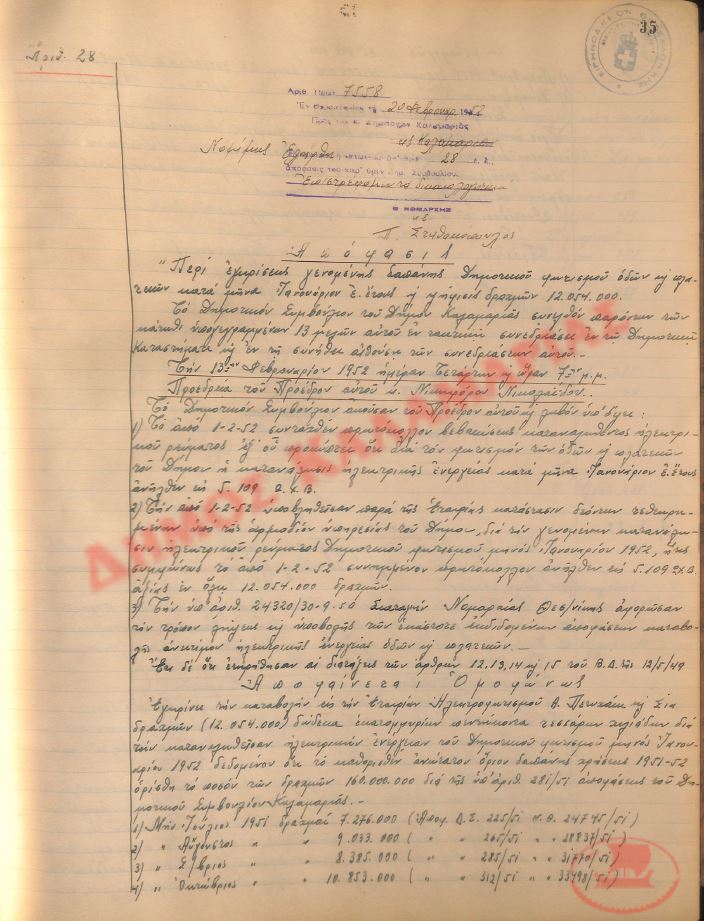 35
Ἀριθ. 28
Ἀριθ. Πρωτ. 7558
Ἐν Θεσσαλονίκῃ τῇ 20 Φεβρουαρ. 1952
Πρὸς τὸν κ. Δήμαρχον Καλαμαριᾶς
εἰς Καλαμαριὰν
Νομίμως ληφθεῖσα ὑπ' ἀριθ. 28 ἐ. ἔ.
ἀπόφασις τοῦ παρ' ὑμῖν Δημ. Συμβουλίου.
Ἐπιστρέφομεν τὰ δικαιολογητικά
Ὁ ΝΟΜΑΡΧΗΣ
Π. Σταθακόπουλος
Ἀπόφασις
"Περὶ ἐγκρίσεως γενομένης δαπάνης Δημοτικοῦ φωτισμοῦ ὁδῶν κ πλα-
τειῶν κατὰ μῆνα Ἰανουάριον ἐ. ἔτους ἢ ψήφισις δραχμῶν 12.054.000.
Τὸ Δημοτικὸν Συμβούλιον τοῦ Δήμου Καλαμαριᾶς συνελθὸν παρόντων τῶν
κάτωθι ὑπογεγραμμένων 13 μελῶν αὐτοῦ ἐν τακτικῇ συνεδριάσει ἐν τῷ Δημοτικῷ
Καταστήματι κ ἐν τῇ συνήθει αἰθούσῃ τῶν συνεδριάσεων αὐτοῦ.-
Τὴν 13ην Φεβρουαρίου 1952 ἡμέραν Τετάρτην κ ὥραν 7ην μ.μ.
Προεδρίᾳ τοῦ Προέδρου αὐτοῦ κ. Νικηφόρου Νικολαΐδου.
Τὸ Δημοτικὸν Συμβούλιον ἀκοῦσαν τοῦ Προέδρου αὐτοῦ κ λαβὸν ὑπ' ὄψει:
1) Τὸ ἀπὸ 1-2-52 συνταχθὲν πρωτόκολλον βεβαιώσεως καταναλωθέντος ἠλεκτρι-
κοῦ ρεύματος ἐξ οὗ προκύπτει ὅτι διὰ τὸν φωτισμὸν τῶν ὁδῶν κ πλατειῶν
τοῦ Δήμου ἡ κατανάλωσις ἠλεκτρικῆς ἐνεργείας κατὰ μῆνα Ἰανουάριον ἐ. ἔτους
ἀνῆλθεν εἰς 5.109 ὡ.χ.β.
2) Τὴν ἀπὸ 1-2-52 ὑποβληθεῖσαν παρὰ τῆς Ἑταιρίας κατάστασιν δεόντως τεθεωρη-
μένην ὑπὸ τῆς ἁρμοδίου ὑπηρεσίας τοῦ Δήμου, διὰ τὴν γενομένην κατανάλω-
σιν ἠλεκτρικοῦ ρεύματος Δημοτικοῦ φωτισμοῦ μηνὸς Ἰανουαρίου 1952, ἥτις
συμφώνως τὸ ἀπὸ 1-2-52 συνημμένον πρωτόκολλον ἀνῆλθεν εἰς 5.109 ὡ.χ.β.
ἀξίας ἐν ὅλῳ 12.054.000 δραχμῶν.
3) Τὴν ὑπ' ἀριθ. 24320/30-9-50 διαταγὴν Νομαρχίας Θεσ/νίκης ἀφορῶσαν
τὸν τρόπον λήψεως κ ὑποβολῆς τῶν ἑκάστοτε ἐκδιδομένων ἀποφάσεων καταβο-
λῆς ἀντιτίμου ἠλεκτρικῆς ἐνεργείας ὁδῶν κ πλατειῶν.-
Ἔτι δὲ ὅτι ἐτηρήθησαν αἱ διατάξεις τῶν ἄρθρων 12.13,14 κ 15 τοῦ Β.Δ. τῆς 12/5/49
Ἀποφαίνεται Ὁμοφώνως
Ἐγκρίνει τὴν καταβολὴν εἰς τὴν Ἑταιρίαν Ἠλεκτροφωτισμοῦ Α. Πεντζάκη κ Σία
δραχμῶν (12.054.000) δώδεκα ἑκατομμυρίων πεντήκοντα τεσσάρων χιλιάδων διὰ
τὴν καταναλωθεῖσαν ἠλεκτρικὴν ἐνέργειαν τοῦ Δημοτικοῦ φωτισμοῦ μηνὸς Ἰανου-
αρίου 1952 δεδομένου ὅτι τὸ καθορισθὲν ἀνώτατον ὅριον δαπάνης χρήσεως 1951-52
ὡρίσθη τὸ ποσὸν τῶν δραχμῶν 160.000.000 διὰ τῆς ὑπ' ἀριθ. 281/51 ἀποφάσεως τοῦ Δη-
μοτικοῦ Συμβουλίου Καλαμαριᾶς.-
1) Μὴν Ἰούλιος 1951 δραχμαὶ 7.276.000 (Ἀποφ. Δ.Σ. 225/51 Ν.Θ. 24745/51)
2) " Αὔγουστος " " 9.033.000 ( " " 265/51 " " 28837/51)
3) " Σ/βριος " " 8.385.000 ( " " 285/51 " " 31770/51)
4) " Ὀκτώβριος " " 10.853.000 ( " " 312/51 " " 33498/51)